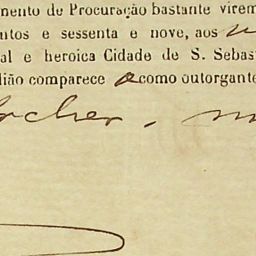 mento de Procuração bastante virem
ntos e sessenta e nove, aos
al e heroica Cidade de S. Sebast
lião comparece o como outorgante
rcher.